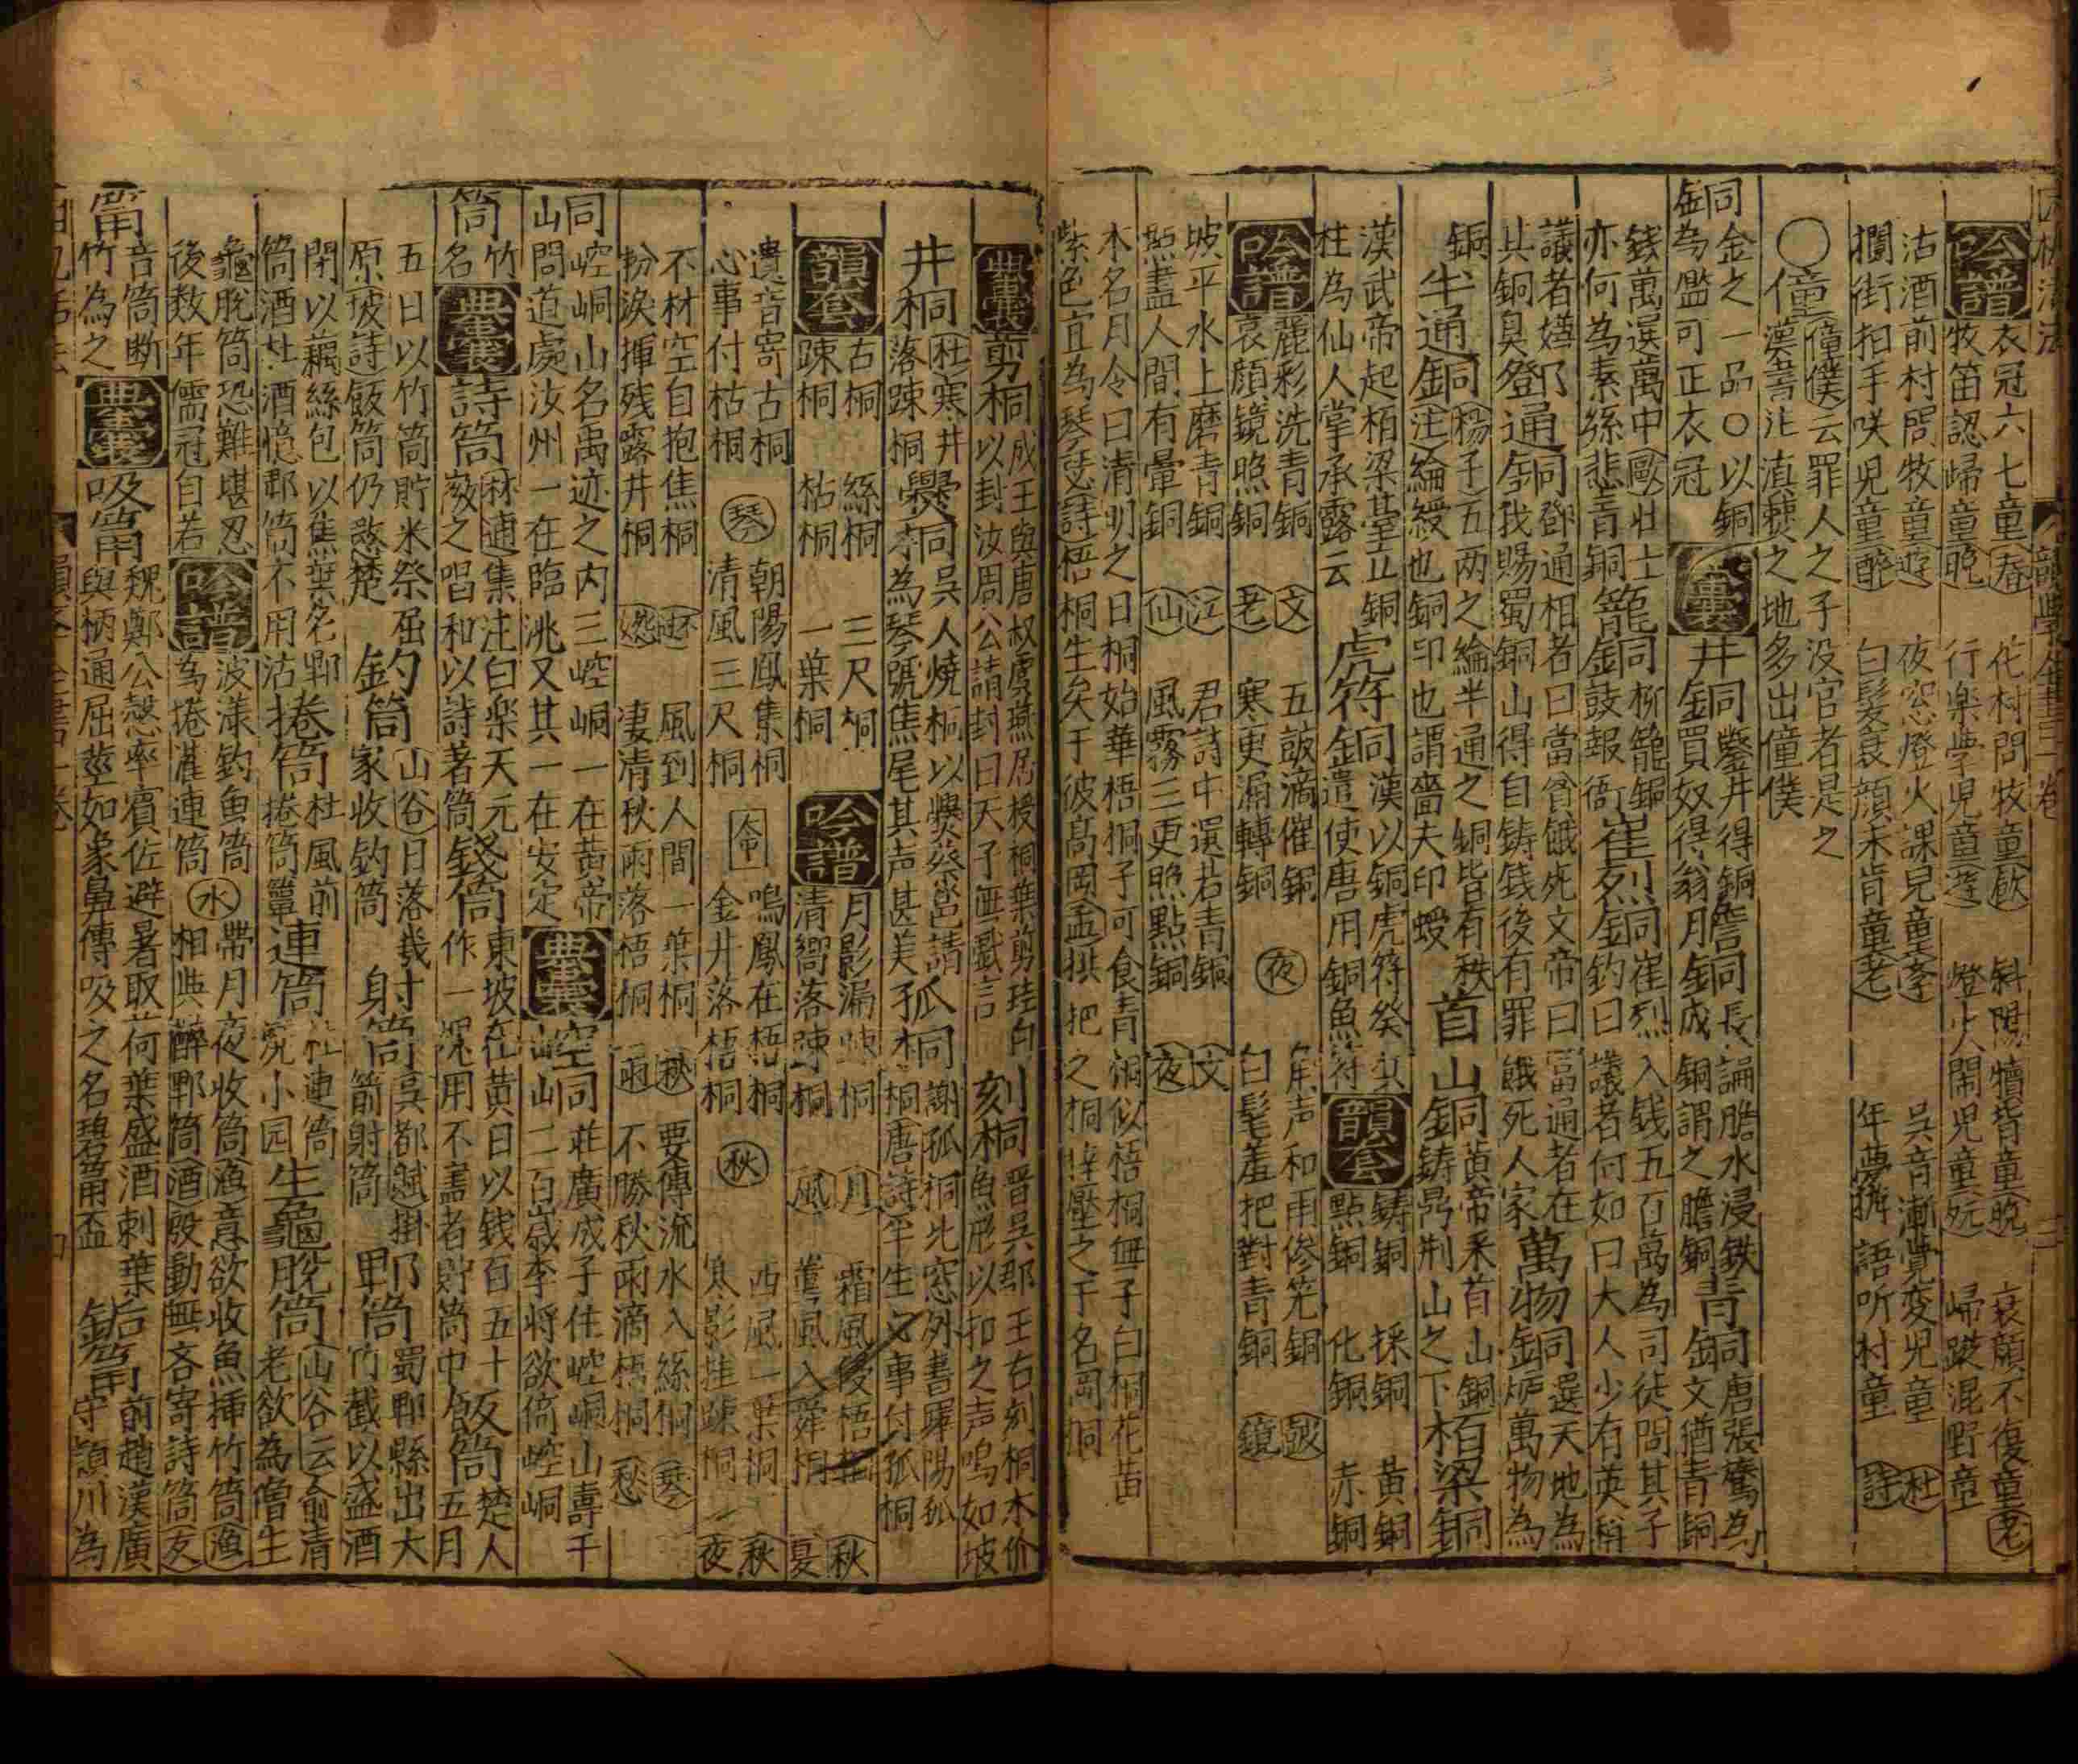 吟譜
衣冠六七童春　花村問牧童飲　斜陽犢背童晚　衰顏不復童老
牧笛認歸童晚　行樂學児童遊　燈火閙児童玩　歸蹤混野童
沽酒前村問牧童遊　夜窓燈火課児童李　吳音漸覺变児童杜
攔街拍手咲児童醉　白髮衰顏未肯童老　年夢擁語听村童詩
○僮
僮僕云罪人之子没官者是之
漢書注滇䝤之地多出僮僕
銅
金之一品○以銅
為鑑可正衣冠
典囊
井銅
鑿井得銅
買奴得翁
膽銅
長論膽水浸鉄
成銅謂之膽銅
青銅
唐張鷟為
文猶青銅
錢萬選萬中歐壮士
亦何為素絲悲青銅
籠銅
柳籠銅
鼓報衙
崔烈銅
崔烈入钱五百萬為司徒問其子
釣曰議者何如曰大人少有英稱
議者嫌
其銅臭
鄧通銅
鄧通相者曰當貧餓死文帝曰富通者在
我賜蜀銅山得自鋳钱後有罪餓死人家
萬物銅
選天地為
炉萬物為
銅
半通銅
楊子五两之綸半通之銅皆有秩
注綸綬也銅印也謂嗇夫印綬
首山銅
黃帝釆首山銅
鋳鼎荆山之下
栢梁銅
漢武帝起栢梁䑓立銅
柱為仙人掌承露云
虎符銅
漢以銅虎符癸兵
遣使唐用銅魚符
韻套
鋳銅　採銅　黃銅
點銅　化銅　赤銅
吟譜
麗彩洗青銅文　五皷滴催銅　角声和雨偧笼銅皷
衰顏鏡照銅老　寒更漏轉銅夜　白髦羞把對青銅鏡
坡平水上磨青銅江　君詩中選若青銅文
點盡人間有暈銅仙　風霧三更照點銅夜
木名月令曰清明之日桐始華梧桐子可食青桐似梧桐無子白桐花黃
紫色宜為琴瑟詩梧桐生矣于彼髙岡孟拱把之桐摧壓之于名岡桐
典囊
剪桐
成王與唐叔虞燕居授桐葉剪珪曰
以封汝周公請封曰天子無戱言
刻桐
晋吳郡王右刻桐木价
魚形以扣之声鳴如坡
井桐
杜寒井
落踈桐
爨桐
吳人燒桐以爨蔡邕請
為琴號焦尾其声甚美
孤桐
謝孤桐北窓外書嶧陽孤
桐唐詩平生心事付孤桐
韻套
古桐　絲桐　三尺桐
踈桐　枯桐　一葉桐
吟譜
月影漏踈桐月　霜風後梧桐秋
清嚮落踈桐風　薰風入舜桐夏
遺音寄古桐琴　朝陽鳳集桐命　鳴鳳在梧桐秋　西風一葉桐秋
心事付枯桐　清風三尺桐　金井落梧桐　寒影挂踈桐夜
不材空自抱焦桐　風到人間一葉桐秋　要傳流水入絲桐琴
扮淚揮残露井桐怨　凄清秋雨落梧桐雨　不勝秋雨滴梧桐愁
峒
崆峒山名禹迹之内三崆峒一在黃帝
問道處汝州一在臨洮又其一在安定
典囊
空同山
莊廣成子住崆峒山壽千
二百歲李将欲倚崆峒
筒
竹
名
典囊
詩筒
林逋集注曰楽天元
㣲之唱和以詩著筒
錢筒
東坡在黄日以钱百五十
作一塊用不盡者貯筒中
飯筒
楚人五月
五日以竹筒貯米祭屈
原坡詩飯筒仍愍楚
釣筒
山谷日落幾
家收釣筒
射筒
吳都賦掛
箭射筒
郫筒
蜀郫縣出大
竹截以盛酒
閉以藕絲包以蕉葉名郫
筒酒杜酒憶郫筒不用沽
捲筒
杜風前
捲筒簟
連筒
杜連筒
灣小园
生龜脫筒
山谷云俞清
老欲為僧生
龜脫筒恐難堪忍
後数年儒冠自若
吟譜
波漾釣魚筒水　帶月夜收筒漁　意欲收魚揷竹筒漁
為捲灌連筒　相與醉郫筒酒　殷動無吝寄詩筒友
筩
音筒断
竹為之
典囊
吸筩
魏鄭公慤率賓佐避暑取荷葉盛酒刺葉
與柄通屈莖如象鼻傳吸之名碧筩盃
缿筩
前趙漢廣
守潁川為